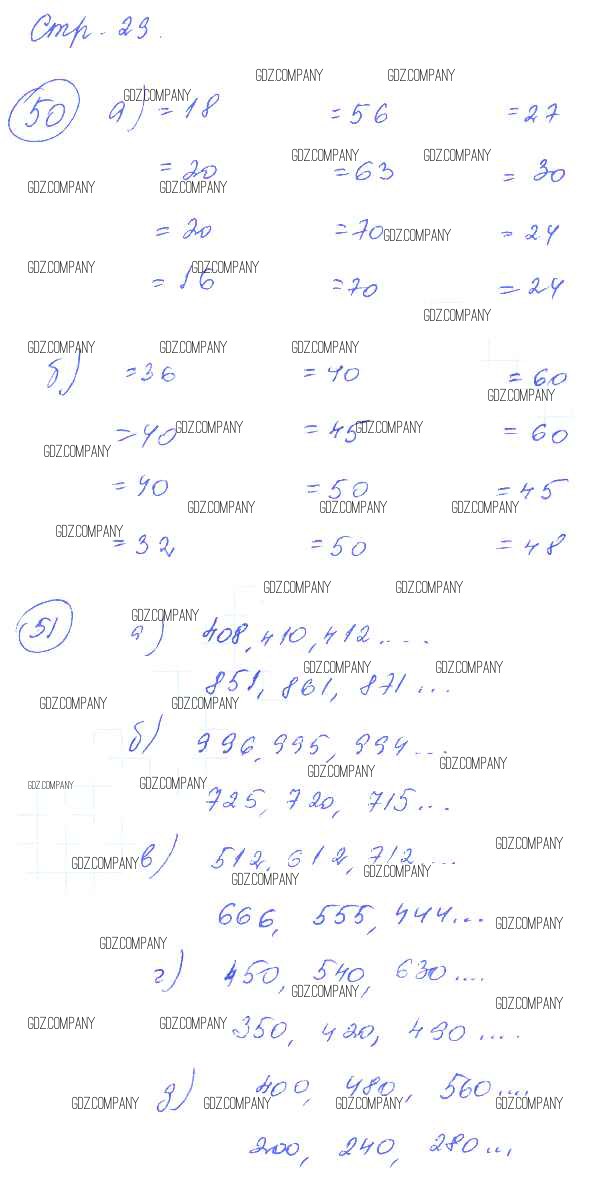 Стр. 23.
GDZ.COMPANY GDZ.COMPANY
GDZ.COMPANY
50 а) = 18 = 56 = 27
GDZ.COMPANY GDZ.COMPANY
= 20 = 63 = 30
GDZ.COMPANY GDZ.COMPANY
= 20 = 70 = 24
GDZ.COMPANY
GDZ.COMPANY GDZ.COMPANY
= 16 = 70 = 24
GDZ.COMPANY
GDZ.COMPANY GDZ.COMPANY GDZ.COMPANY
б) = 36 = 40 = 60
GDZ.COMPANY
= 40 = 45 = 60
GDZ.COMPANY GDZ.COMPANY
GDZ.COMPANY
= 40 = 50 = 45
GDZ.COMPANY GDZ.COMPANY GDZ.COMPANY
GDZ.COMPANY
= 32 = 50 = 48
GDZ.COMPANY GDZ.COMPANY
GDZ.COMPANY
51 а) 408, 410, 412....
GDZ.COMPANY GDZ.COMPANY
851, 861, 871...
GDZ.COMPANY GDZ.COMPANY
б) 996, 995, 994...
GDZ.COMPANY
GDZ.COMPANY
GDZ.COMPANY GDZ.COMPANY
725, 720, 715...
GDZ.COMPANY
в) 512, 612, 712,...
GDZ.COMPANY
GDZ.COMPANY GDZ.COMPANY
666, 555, 444...
GDZ.COMPANY
GDZ.COMPANY
г) 450, 540, 630....
GDZ.COMPANY
GDZ.COMPANY
GDZ.COMPANY GDZ.COMPANY
350, 420, 490....
д) 400, 480, 560....
GDZ.COMPANY GDZ.COMPANY GDZ.COMPANY GDZ.COMPANY
200, 240, 280...